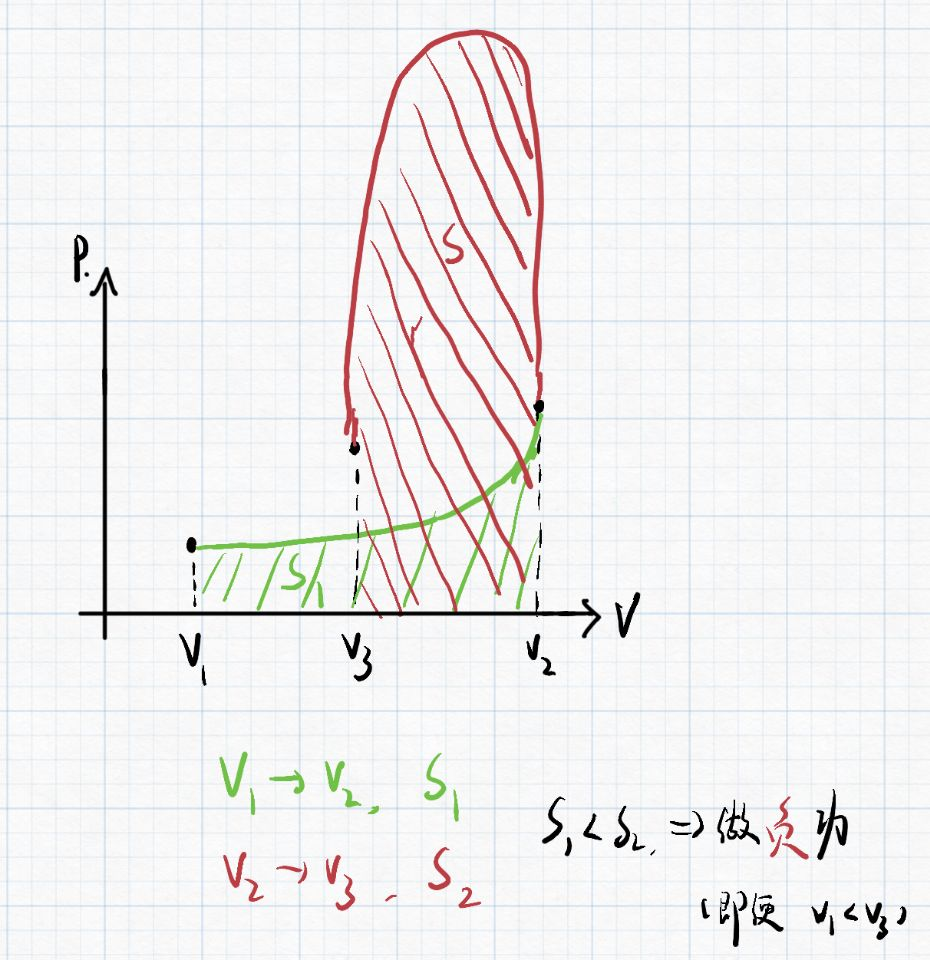 P.
S
S1
V
V1
V3
V2
V1 → V2, S1
V2 → V3, S2
S1 < S2, ⇒ 做负功
(即便 V1 < V3)